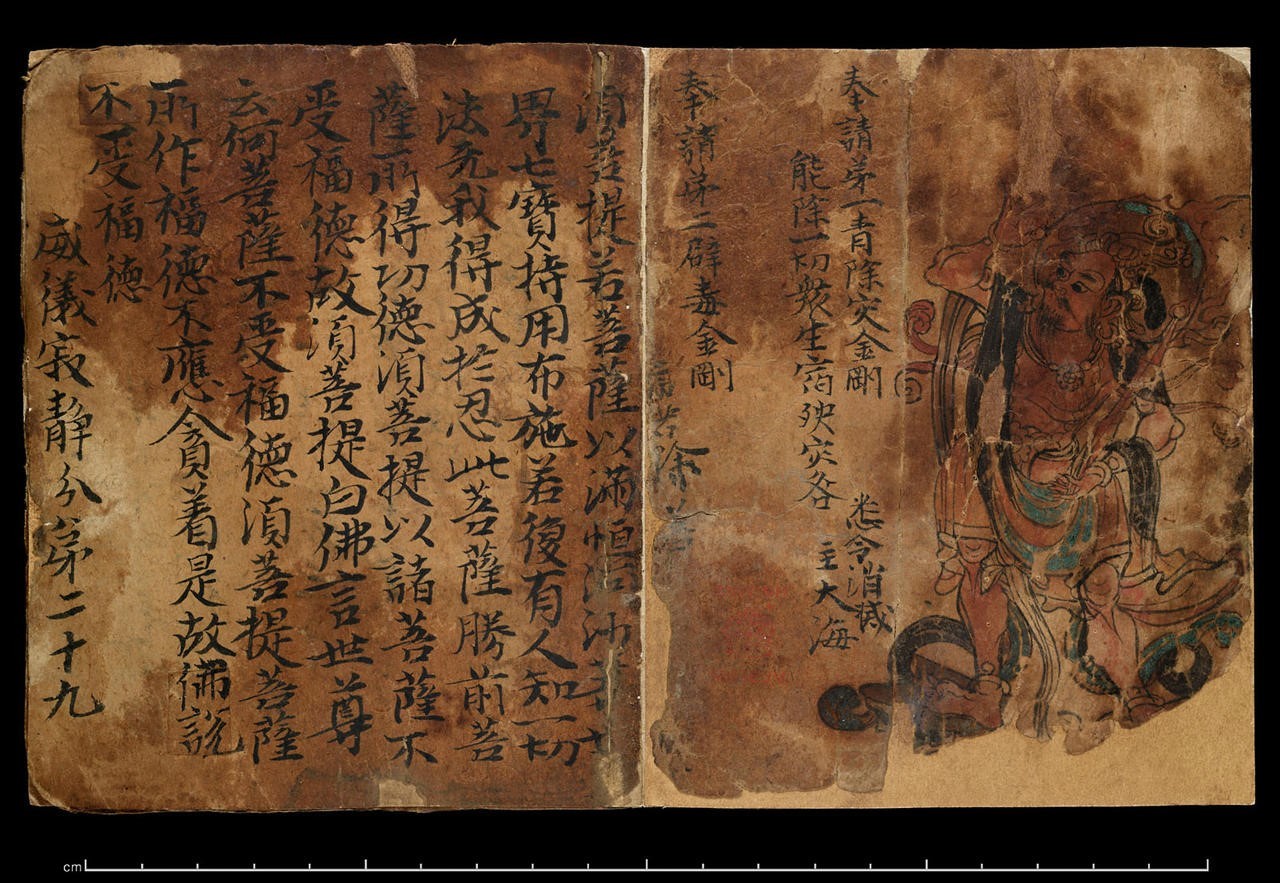 奉請苐一青除灾金剛
能除一切衆生宿殃灾咎
悉令消滅
主大海
奉請苐二辟毒金剛
除
須菩提若菩薩以滿恒河沙等世
界七寶持用布施若復有人知一切
法无我得成於忍此菩薩勝前菩
薩所得功德須菩提以諸菩薩不
受福德故須菩提白佛言世尊
云何菩薩不受福德須菩提菩薩
所作福德不應貪着是故佛說
不受福德
威儀寂静分苐二十九
cm